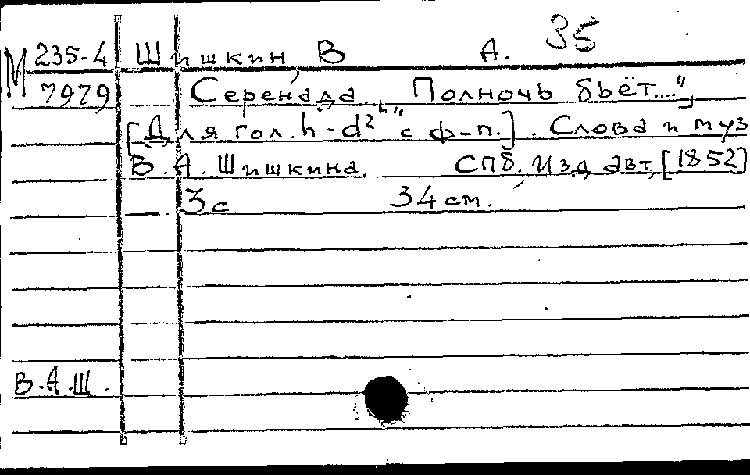 35
М 235-4 Шишкин, В. А.
7979 Серенада „Полночь бьёт....",
[Для гол. h-d² с ф-п.]. Слова и муз
В. А. Шишкина. СПб. Изд. авт, [1852]
3с 34 см.
В.А.Ш.